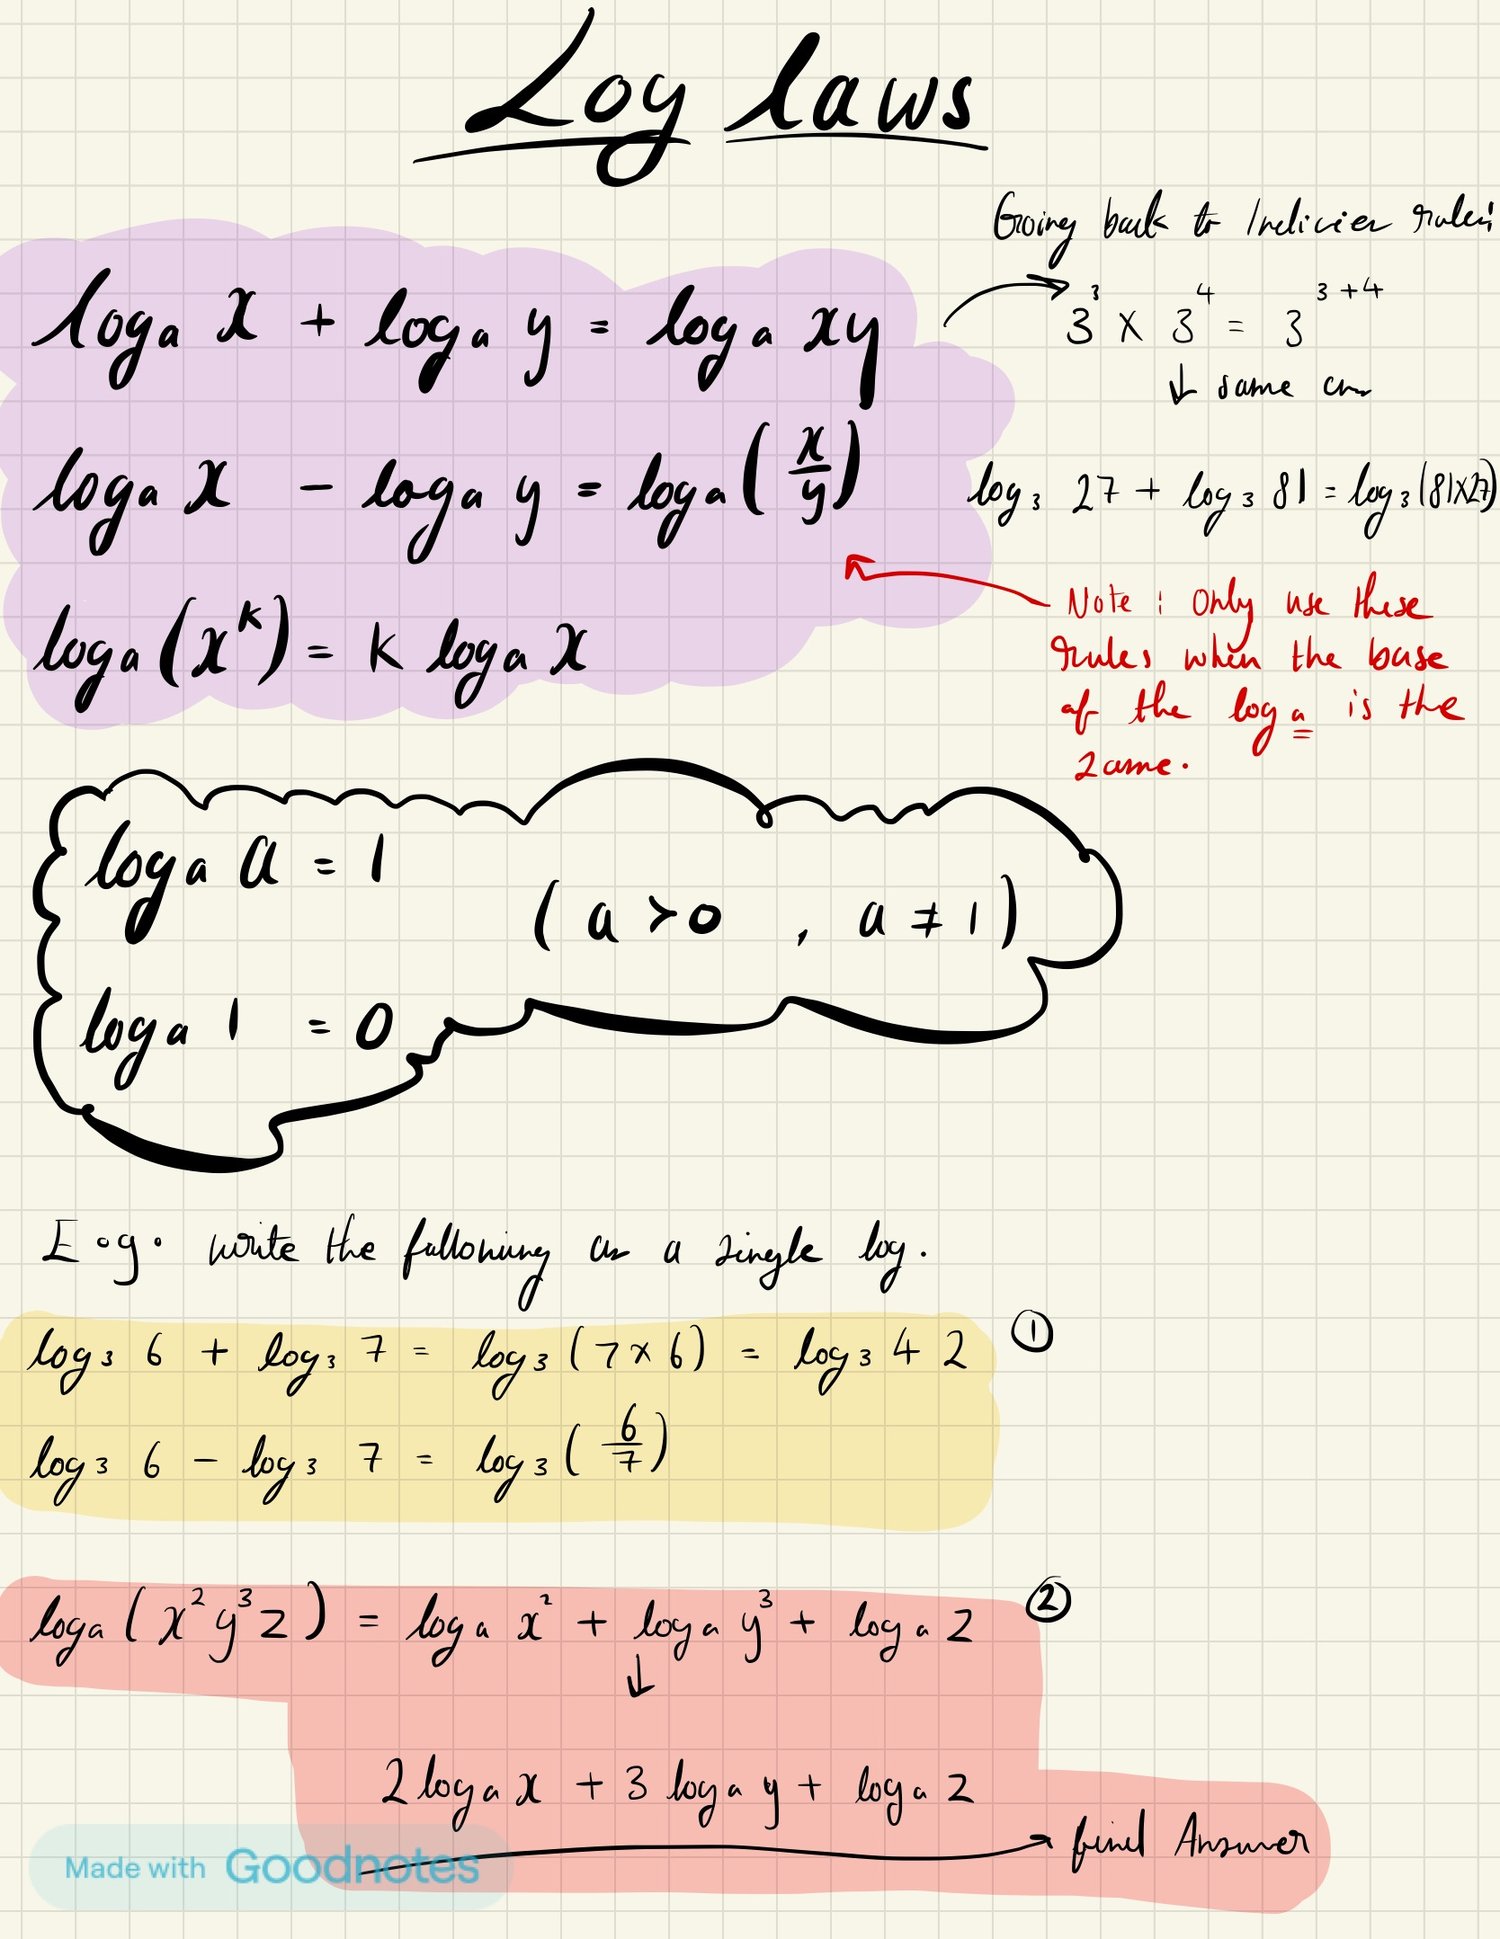 Log laws
Going back to Indicies rules:
logₐ x + logₐ y = logₐ xy
3³ × 3⁴ = 3³⁺⁴
↓ same as
logₐ x - logₐ y = logₐ (x/y)
log₃ 27 + log₃ 81 = log₃ (81×27)
Note : Only use these
rules when the base
of the log a is the
same.
logₐ (xᵏ) = k logₐ x
logₐ a = 1
(a > 0 , a ≠ 1)
logₐ 1 = 0
E.g. write the following as a single log.
log₃ 6 + log₃ 7 = log₃ (7 × 6) = log₃ 42 ①
log₃ 6 - log₃ 7 = log₃ (6/7)
logₐ (x²y³z) = logₐ x² + logₐ y³ + logₐ z ②
↓
2 logₐ x + 3 logₐ y + logₐ z
→ final Answer
Made with Goodnotes